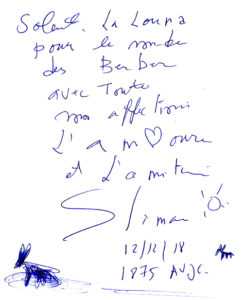 Soleil. La Louna
pour le monde
des Berber
avec Toute
mon affection
L'am♡oure
et L'amitié
Sliman
12/12/18
1875 AVJC.